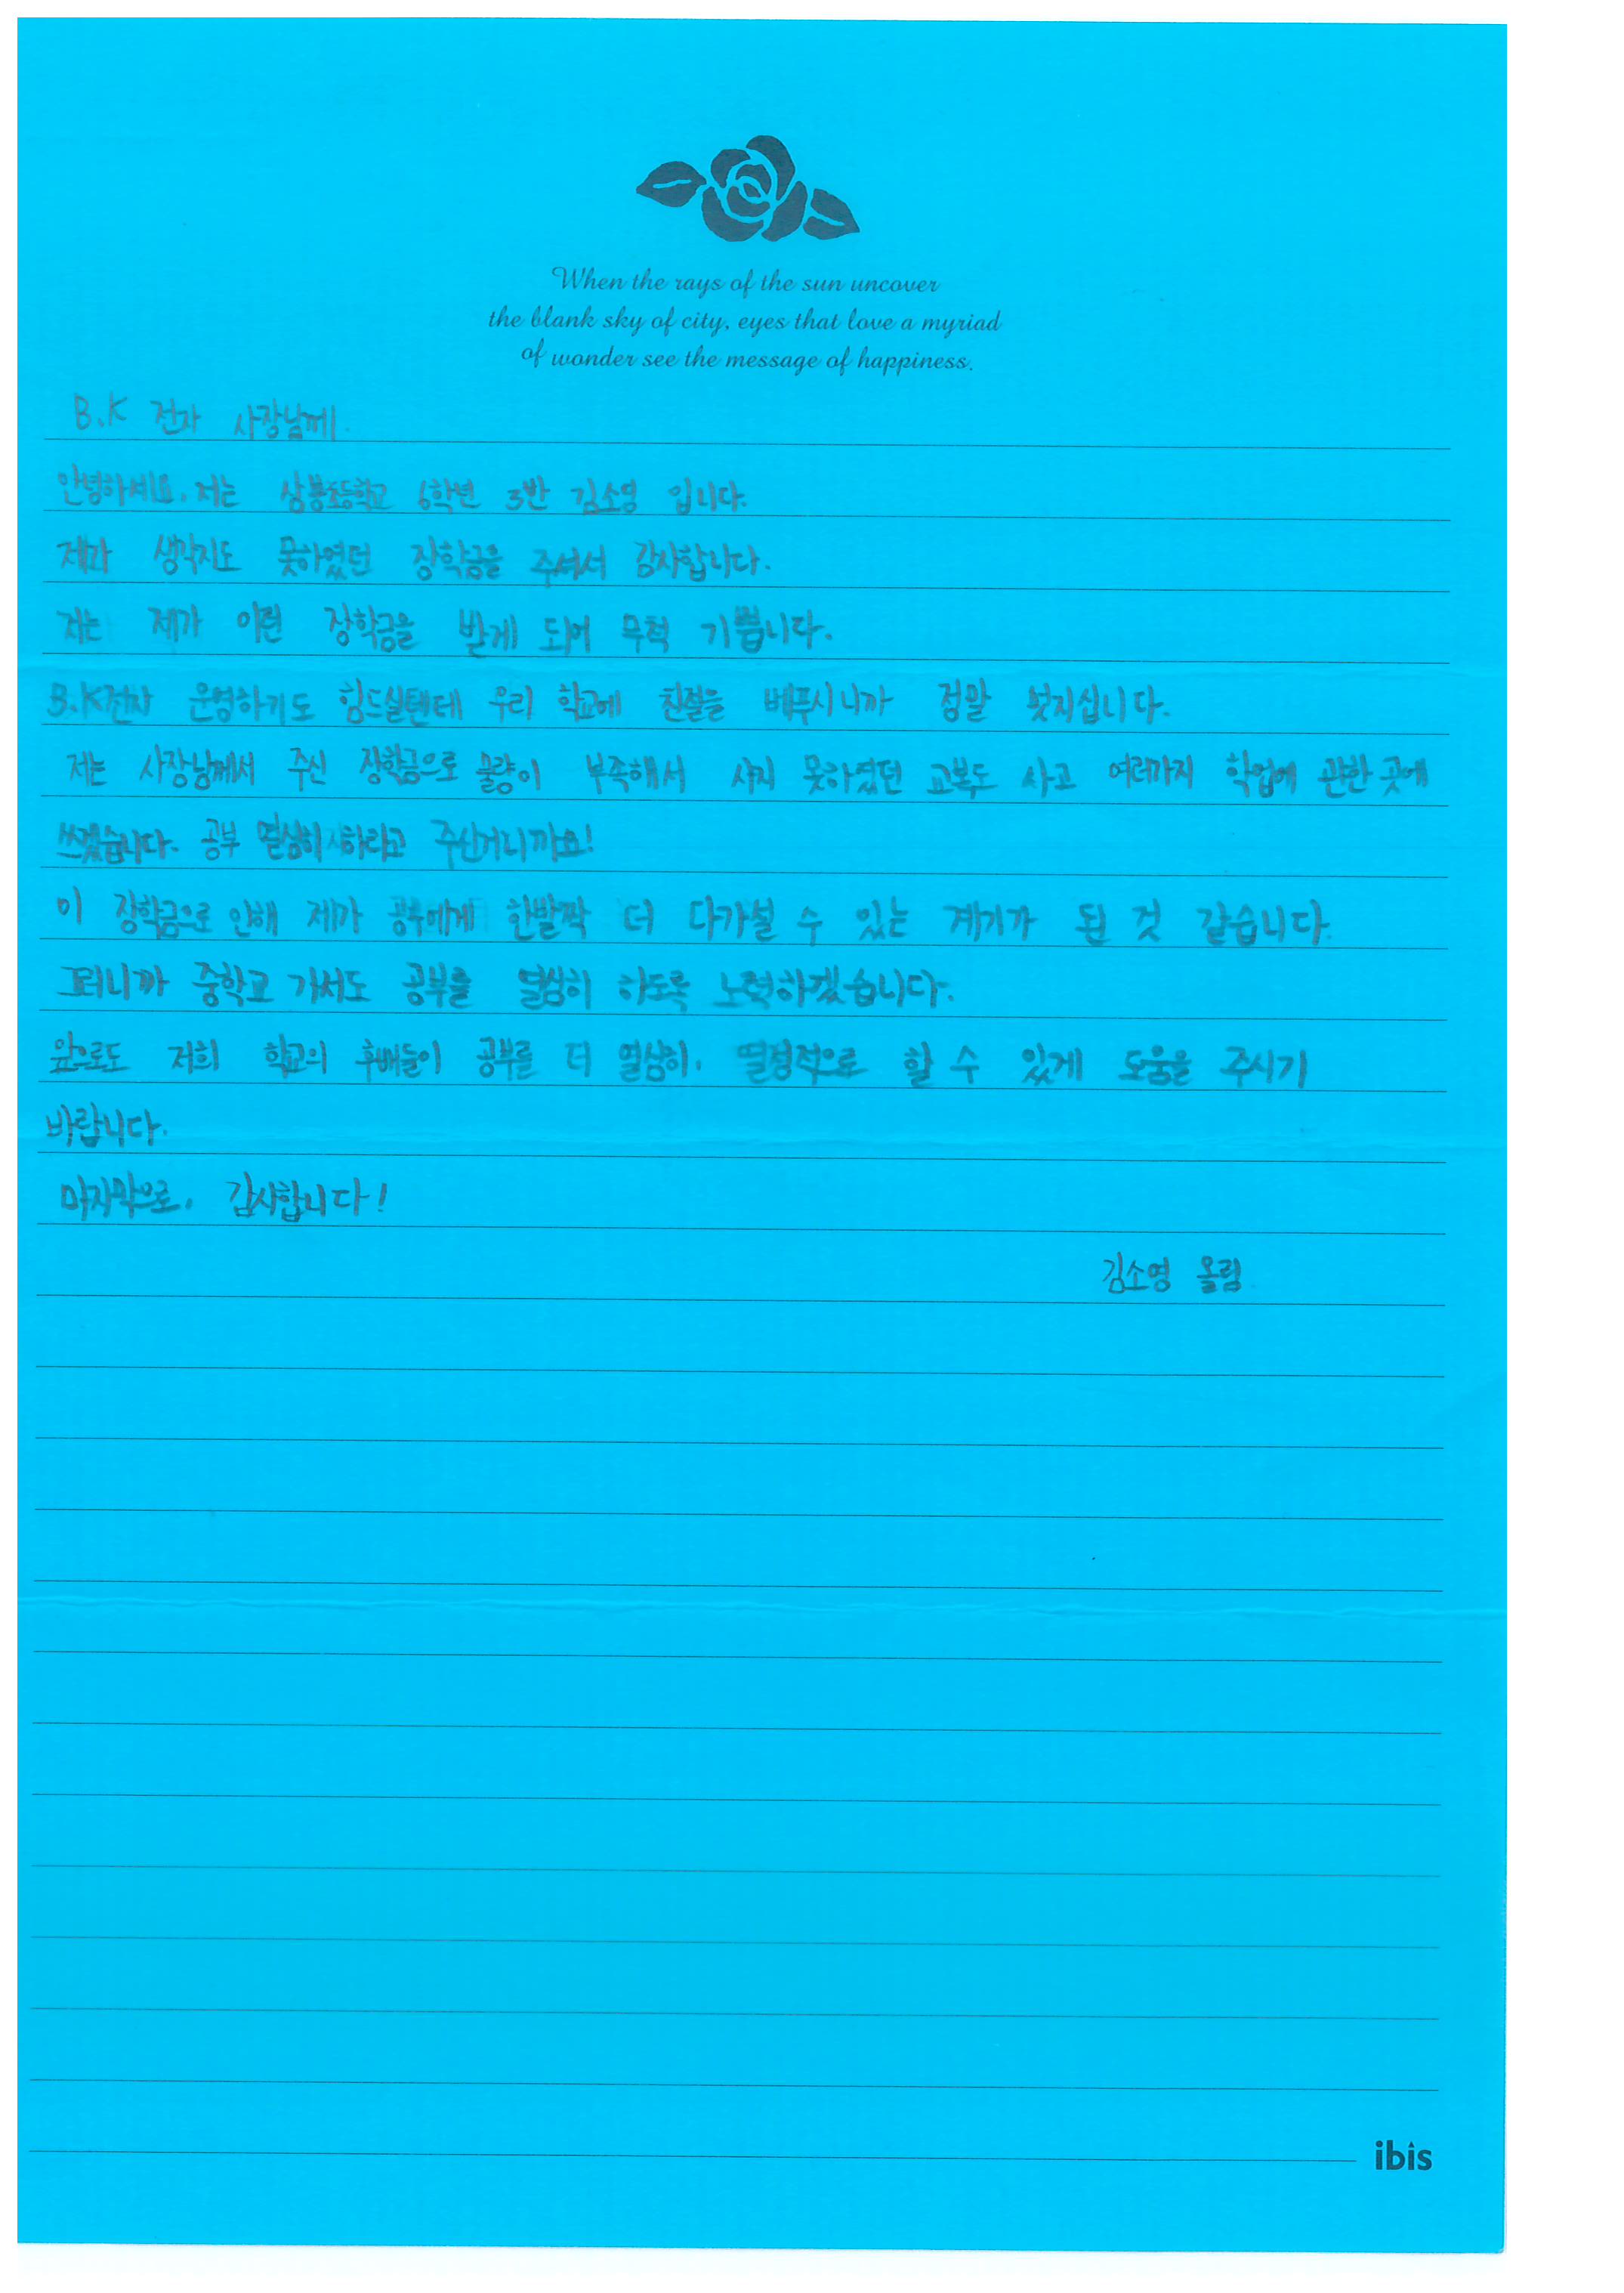 When the rays of the sun uncover
the blank sky of city, eyes that love a myriad
of wonder see the message of happiness.
B.K 전자 사장님께.
안녕하세요. 저는 상봉초등학교 6학년 3반 김소영 입니다.
제가 생각지도 못하였던 장학금을 주셔서 감사합니다.
저는 제가 이런 장학금을 받게 되어 무척 기쁩니다.
B.K전자 운영하기도 힘드실텐데 우리 학교에 친절을 베푸시니까 정말 멋지십니다.
저는 사장님께서 주신 장학금으로 물량이 부족해서 사지 못하였던 교복도 사고 여러가지 학업에 관한 곳에
쓰겠습니다. 공부 열심히 하라고 주신거니까요!
이 장학금으로 인해 제가 공부에게 한발짝 더 다가설 수 있는 계기가 된 것 같습니다.
그러니까 중학교 가서도 공부를 열심히 하도록 노력하겠습니다.
앞으로도 저희 학교의 후배들이 공부를 더 열심히, 열정적으로 할 수 있게 도움을 주시기
바랍니다.
마지막으로, 감사합니다!
김소영 올림
ibis